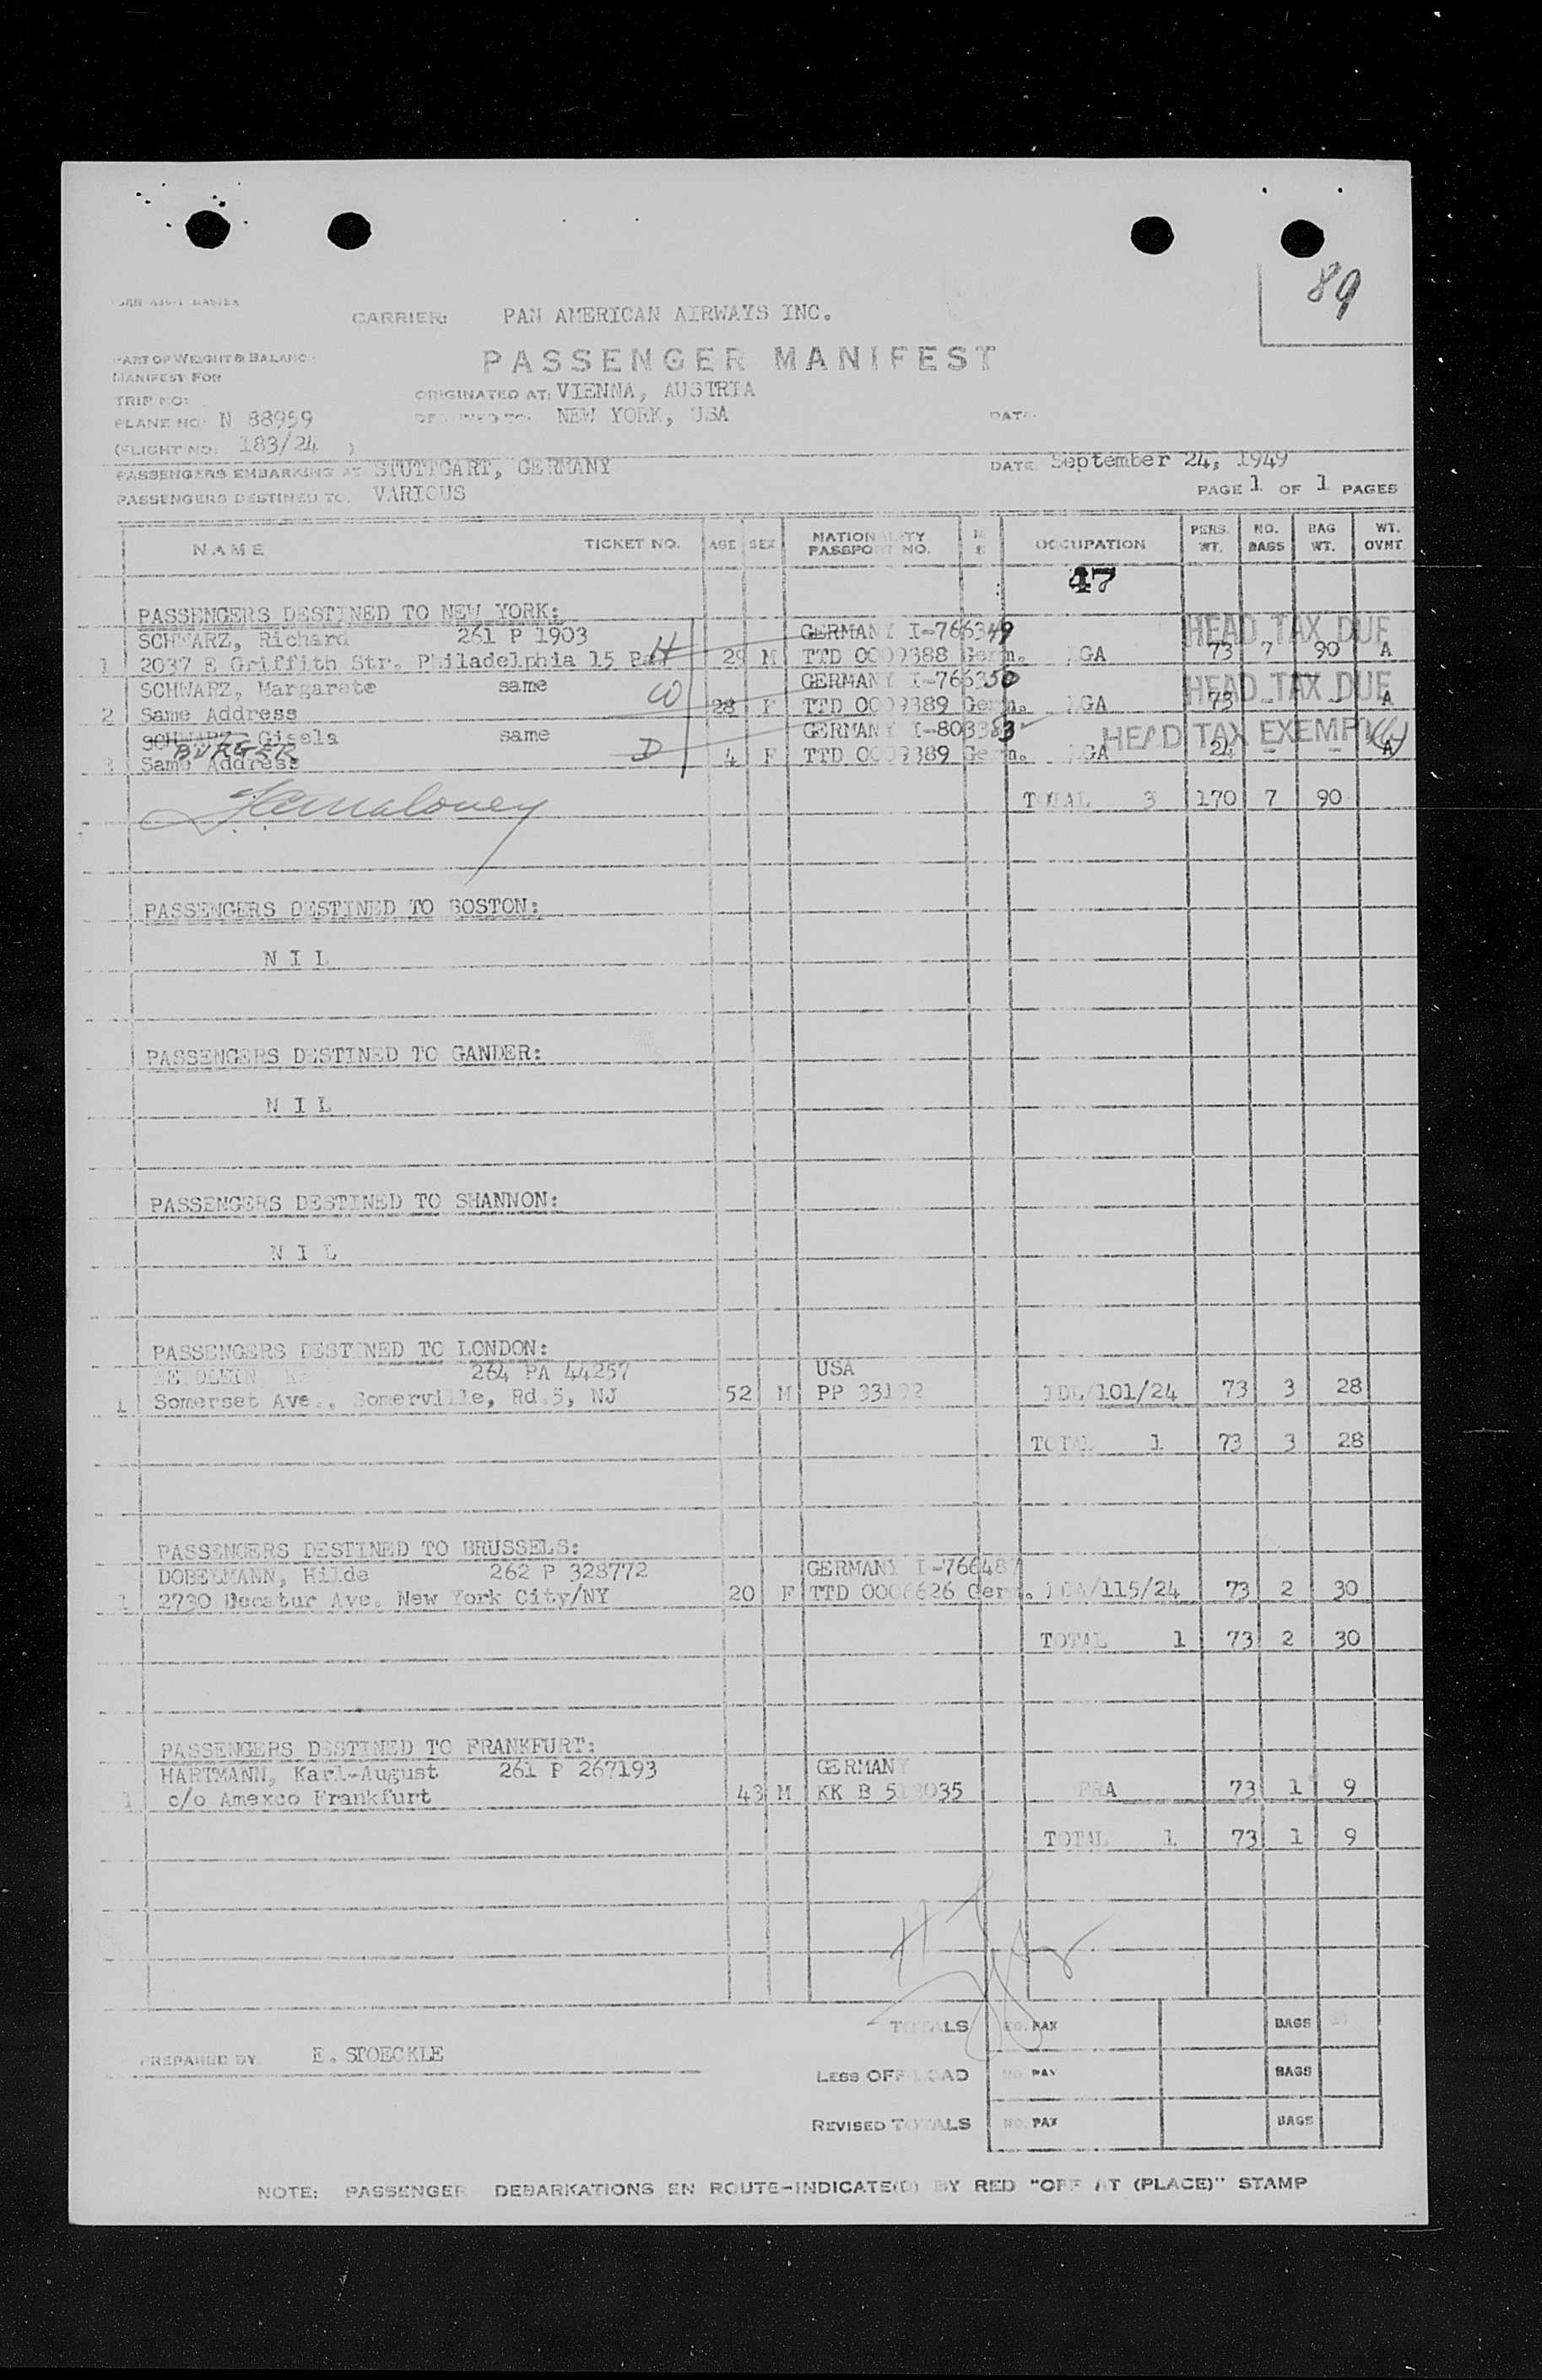 89
CARRIER: PAN AMERICAN AIRWAYS INC.
PART OF WEIGHT & BALANC
MANIFEST FOR
PASSENGER MANIFEST
TRIP NO:
ORIGINATED AT: VIENNA, AUSTRIA
PLANE NO: N 88959
NEW YORK, USA
DATE
(FLIGHT NO: 183/24 )
PASSENGERS EMBARKING AT STUTTGART, GERMANY
DATE: September 24, 1949
PASSENGERS DESTINED TO: VARIOUS
PAGE 1 OF 1 PAGES
NAME TICKET NO. AGE SEX NATIONALITY PASSPORT NO. OCCUPATION PERS. WT. NO. BAGS BAG WT. WT. OVMT
47
PASSENGERS DESTINED TO NEW YORK:
SCHWARZ, Richard 261 P 1903 GERMANY I-766349 HEAD TAX DUE
1 2037 E Griffith Str. Philadelphia 15 H 29 M TTD 0009388 Germ. LGA 73 7 90 A
SCHWARZ, Margarete same W GERMANY I-766350 HEAD TAX DUE
2 Same Address 28 F TTD 0009389 Germ. LGA 73 - - A
SCHWARZ, Gisela same GERMANY I-803353 HEAD TAX EXEMPT
BURGER
3 Same Address D 4 F TTD 0009389 Germ. LGA 24 - - A
TOTAL 3 170 7 90
PASSENGERS DESTINED TO BOSTON:
NIL
PASSENGERS DESTINED TO GANDER:
NIL
PASSENGERS DESTINED TO SHANNON:
NIL
PASSENGERS DESTINED TO LONDON:
264 PA 44257 USA
1 Somerset Ave., Somerville, Rd.5, NJ 52 M PP 33192 IDL/101/24 73 3 28
TOTAL 1 73 3 28
PASSENGERS DESTINED TO BRUSSELS:
DOBELMANN, Hilde 262 P 328772 GERMANY I-766487
1 2730 Decatur Ave. New York City/NY 20 F TTD 0006626 Germ. LGA/115/24 73 2 30
TOTAL 1 73 2 30
PASSENGERS DESTINED TO FRANKFURT:
HARTMANN, Karl-August 261 P 267193 GERMANY
1 c/o Amexco Frankfurt 43 M KK B 513035 FRA 73 1 9
TOTAL 1 73 1 9
TOTALS NO. PAX BAGS
PREPARED BY E. STOECKLE
LESS OFF-LOAD NO. PAX BAGS
REVISED TOTALS NO. PAX BAGS
NOTE: PASSENGER DEBARKATIONS EN ROUTE-INDICATE(D) BY RED "OFF AT (PLACE)" STAMP